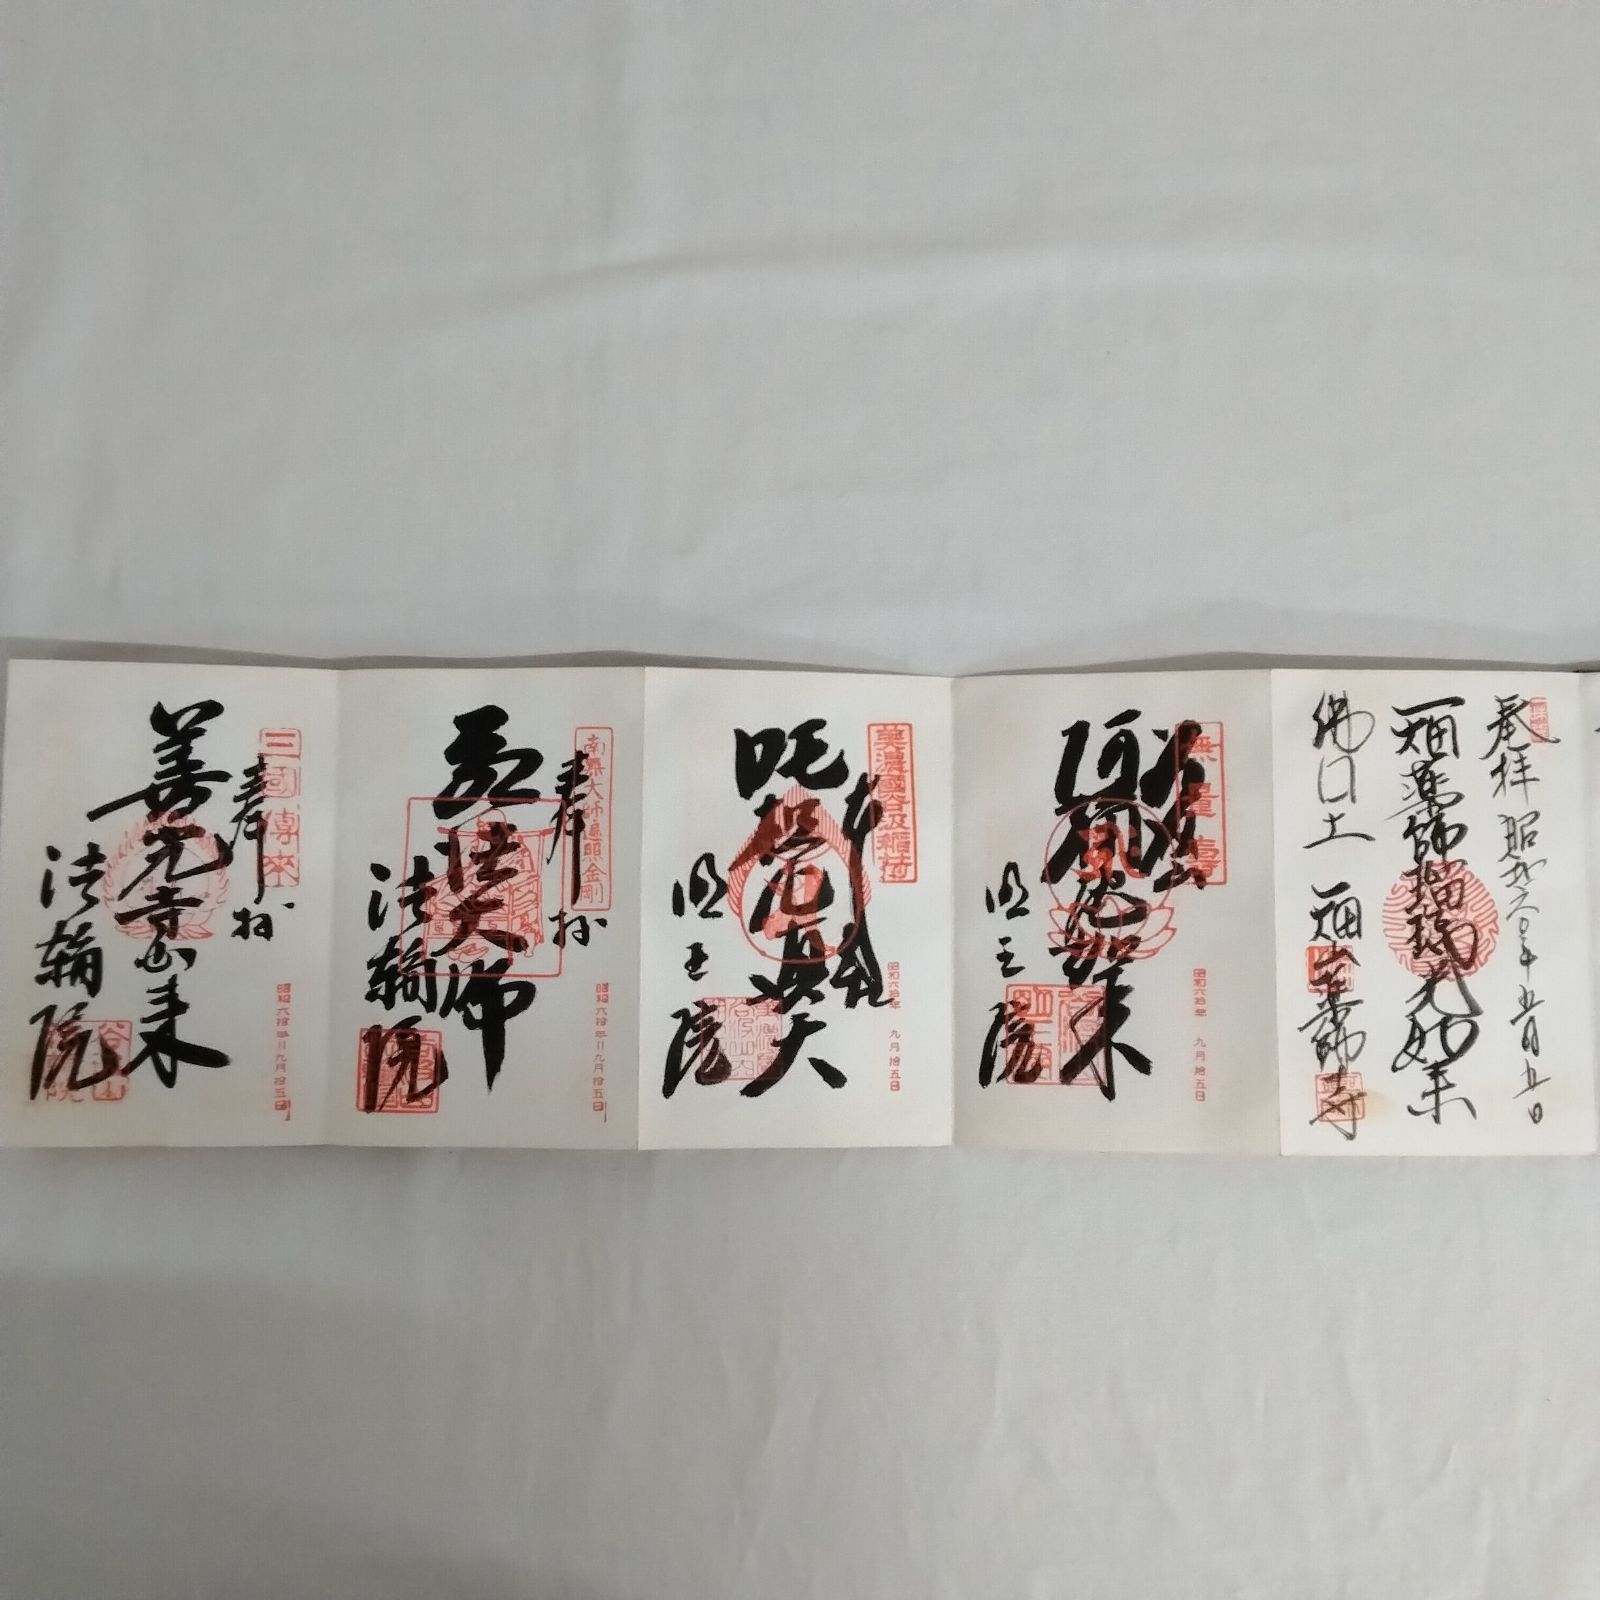 奉拝 昭和六〇年五月五日
一畑薬師瑠璃光如来
佛日山 一畑山薬師寺
谷汲山
阿彌陀如来
明王院
昭和六拾年 九月拾五日
美濃國谷汲稲荷
奉拝
吒枳尼真天
明王院
昭和六拾年 九月拾五日
南無大師遍照金剛
奉拝
弘法大師
法輪院
昭和六拾年 九月拾五日
三國傳來
奉拝
善光寺如来
法輪院
昭和六拾年 九月拾五日